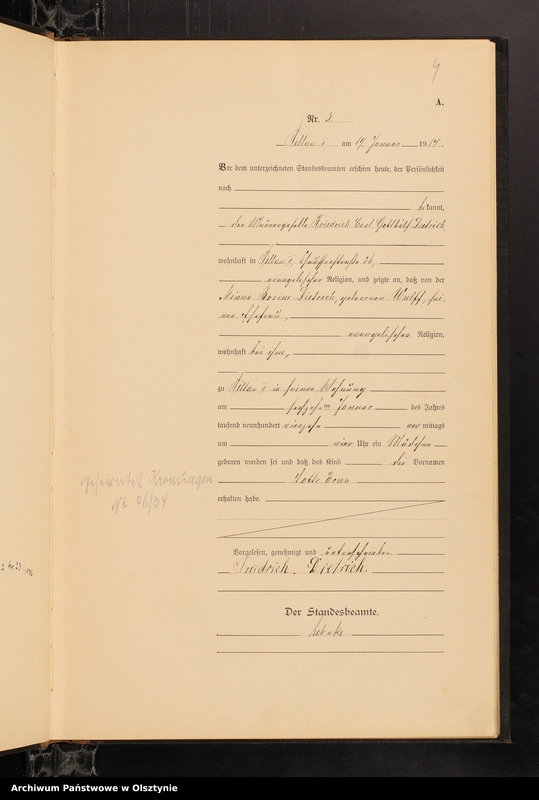 4
A.
Nr. 2.
Pillau I am 19. Januar 1914.
Vor dem unterzeichneten Standesbeamten erschien heute, der Persönlichkeit
nach
bekannt,
der Maurergeselle Friedrich Carl Gotthilf Dietrich,
wohnhaft in Pillau I, 26,
evangelischer Religion, und zeigte an, daß von der
Minna Rosine Dietrich, geborenen Wulff, sei-
ner Ehefrau,
evangelischer Religion,
wohnhaft bei ihm,
zu Pillau I in seiner Wohnung
am sechszehnten Januar des Jahres
tausend neunhundert vierzehn vormittags
um vier Uhr ein Mädchen
geboren worden sei und daß das Kind die Vornamen
Lotte
erhalten habe.
Vorgelesen, genehmigt und unterschrieben
Friedrich. Dietrich.
Der Standesbeamte.
geheiratet Kronshagen
No 06/34
Archiwum Państwowe w Olsztynie